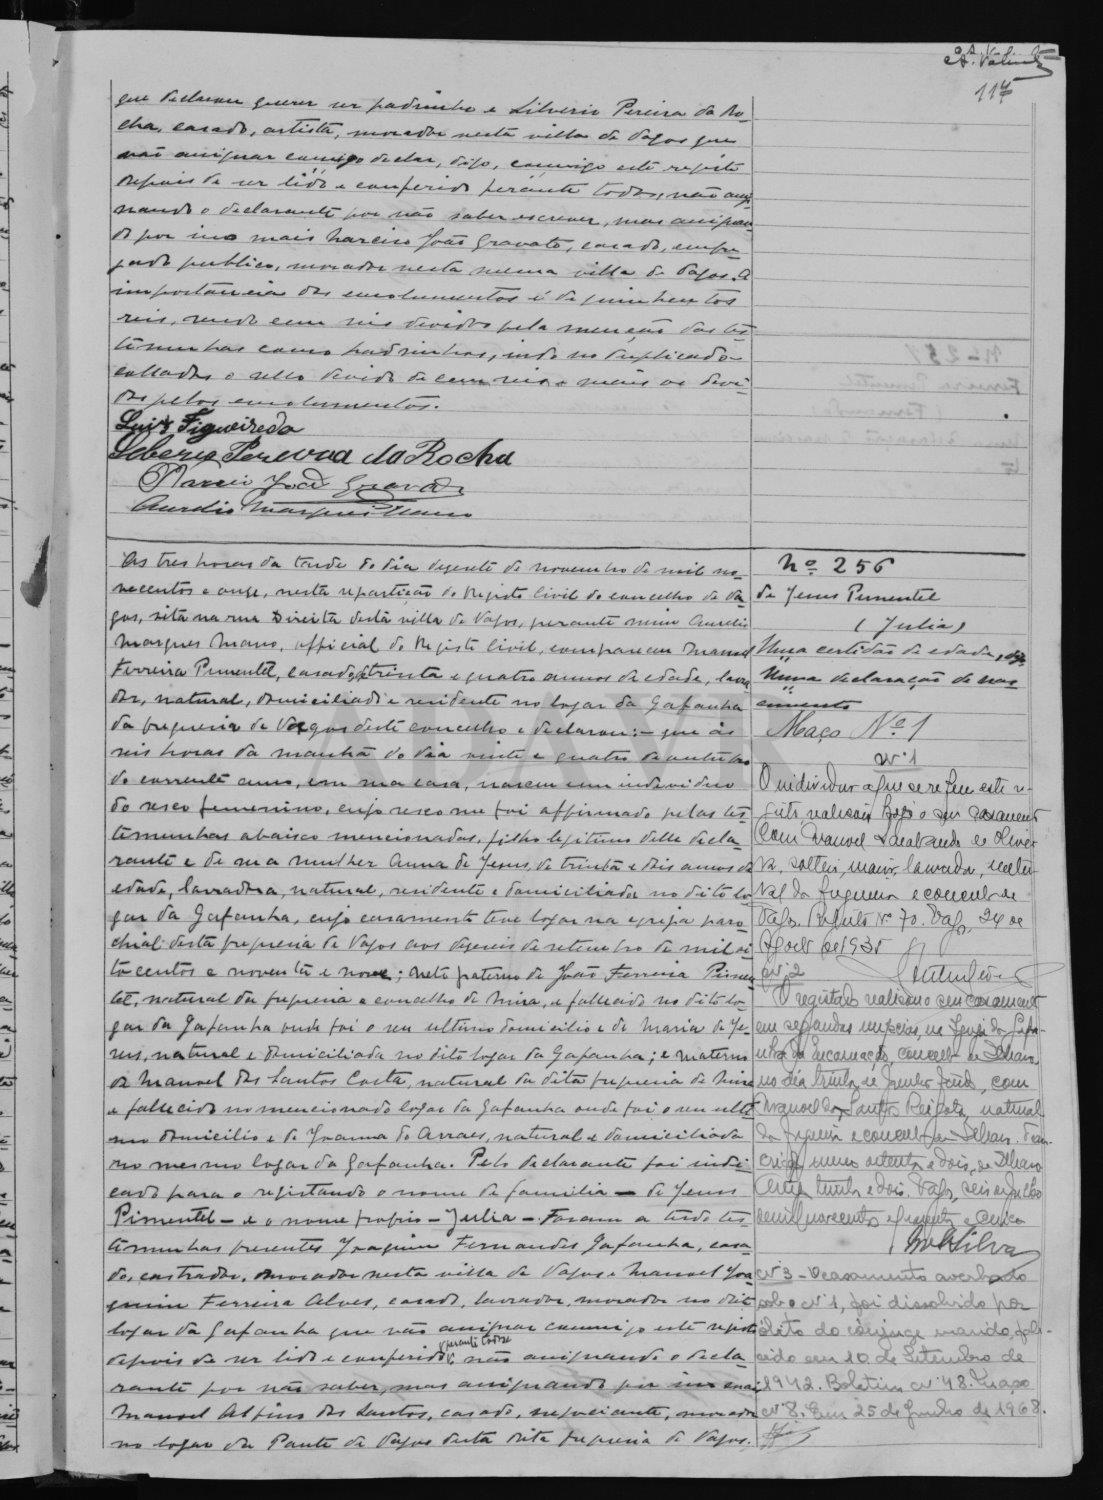 117
que declaram querer ser padrinho e Silverio Pereira da Ro-
cha, casado, artista, morador nesta villa de Vagos que
vão assignar comigo declar, digo, comigo este registo
depois de ser lido e conferido perante todos, não assi-
gnando o declarante por não saber escrever, mas assignan-
do por isso mais Narciso João Gravato, casado, empre-
gado publico, morador nesta mesma villa de Vagos. A
importancia dos emolumentos é de quinhentos
reis, sendo cem reis devidos pela menção das tes-
temunhas como padrinhos, indo no duplicado
collados o sello devido de cem reis e mais os devi-
dos pelos emolumentos.
Luiz Figueiredo
Pereira da Rocha
Narciso João Gravato
Aurelio Marques Mano
As tres horas da tarde do dia desesete de novembro de mil no-
vecentos e onze, nesta repartição do Registo Civil do concelho de Va-
gos, sita na rua Direita desta villa de Vagos, perante mim Aurelio
Marques Mano, official do Registo Civil, compareceu Manuel
Ferreira Pimentel, casado, trinta e quatro annos de edade, lavra-
dor, natural, domiciliado e residente no logar da Gafanha
da freguesia de Vagos deste concelho e declarou: - que ás
seis horas da manhã do dia vinte e quatro de outubro
do corrente anno, em sua casa, nasceu um individuo
do sexo femenino, cujo sexo me foi affirmado pelas tes-
temunhas abaixo mencionadas, filho legitimo delle decla-
rante e de sua mulher Anna de Jesus, de trinta e dois annos de
edade, lavradora, natural, residente e domiciliada no dito lo-
gar da Gafanha, cujo casamento teve logar na egreja paro-
chial desta freguesia de Vagos aos dezeseis de setembro de mil oi-
tocentos e noventa e nove; neto paterno de João Ferreira Pimen-
tel, natural da freguesia e concelho de Mira, e fallecido no dito lo-
gar da Gafanha onde foi o seu ultimo domicilio e de Maria de Je-
sus, natural e domiciliada no dito logar da Gafanha; e materno
de Manuel dos Santos Costa, natural da dita freguesia de Mira
e fallecido no mencionado logar da Gafanha onde foi o seu ulti-
mo domicilio e de Joanna do Arraes, natural e domiciliada
no mesmo logar da Gafanha. Pelo declarante foi indi-
cado para o registando o nome de familia - de Jesus
Pimentel - e o nome proprio - Julia -. Foram a tudo tes-
temunhas presentes Joaquim Fernandes Gafanha, casa-
do, castrador, morador nesta villa de Vagos e Manuel Joa-
quim Ferreira Alves, casado, lavrador, morador no dito
logar da Gafanha que vão assignar commigo este registo
depois de ser lido e conferido perante todos não assignando o decla-
rante por não saber, mas assignando por isso mais
Manuel Alfino dos Santos, casado, negociante, morador
no logar da Ponte de Vagos desta dita freguesia de Vagos.
Nº 256
de Jesus Pimentel
(Julia)
Uma certidão de edade, digo,
Uma declaração de nas-
cimento
Maço Nº 1
Nº 1
O individuo a que se refere este re-
gisto realisou hoje o seu casamento
com Manuel de Olivei-
ra, solteiro, maior, lavrador, natu-
ral da freguesia e concelho de
Vagos. Registo Nº 70. Vagos, 24 de
Agosto de 1935
Nº 2
O registado realisou o seu casamento
em segundas nupcias, na Igreja da Gafa-
nha da Encarnação, concelho de Ilhavo,
no dia trinta de Junho findo, com
Manuel dos Santos, natural
da freguesia e concelho de Ilhavo.
numero oitenta e dois, de Ilhavo
trinta e dois. Vagos, seis de julho
de mil novecentos e quarenta e cinco
Silva
Nº 3 - O casamento averbado
sob o nº 1, foi dissolvido por
óbito do cônjuge marido, fale-
cido em 10 de Setembro de
1942. Boletim nº 48. Maço
nº 8. Em 25 de Junho de 1968.